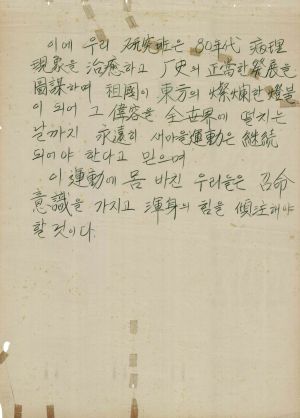 이에 우리 研究班은 80年代 病理
現象을 治癒하고 厂史의 正當한 發展을
圖謀하며 祖國이 東方의 燦爛한 燈불
이 되어 그 偉容을 全世界에 떨치는
날까지 永遠히 새마을運動은 継続
되어야 한다고 믿으며
이 運動에 몸 바친 우리들은 召命
意識을 가지고 渾身의 힘을 傾注해야
할 것이다.